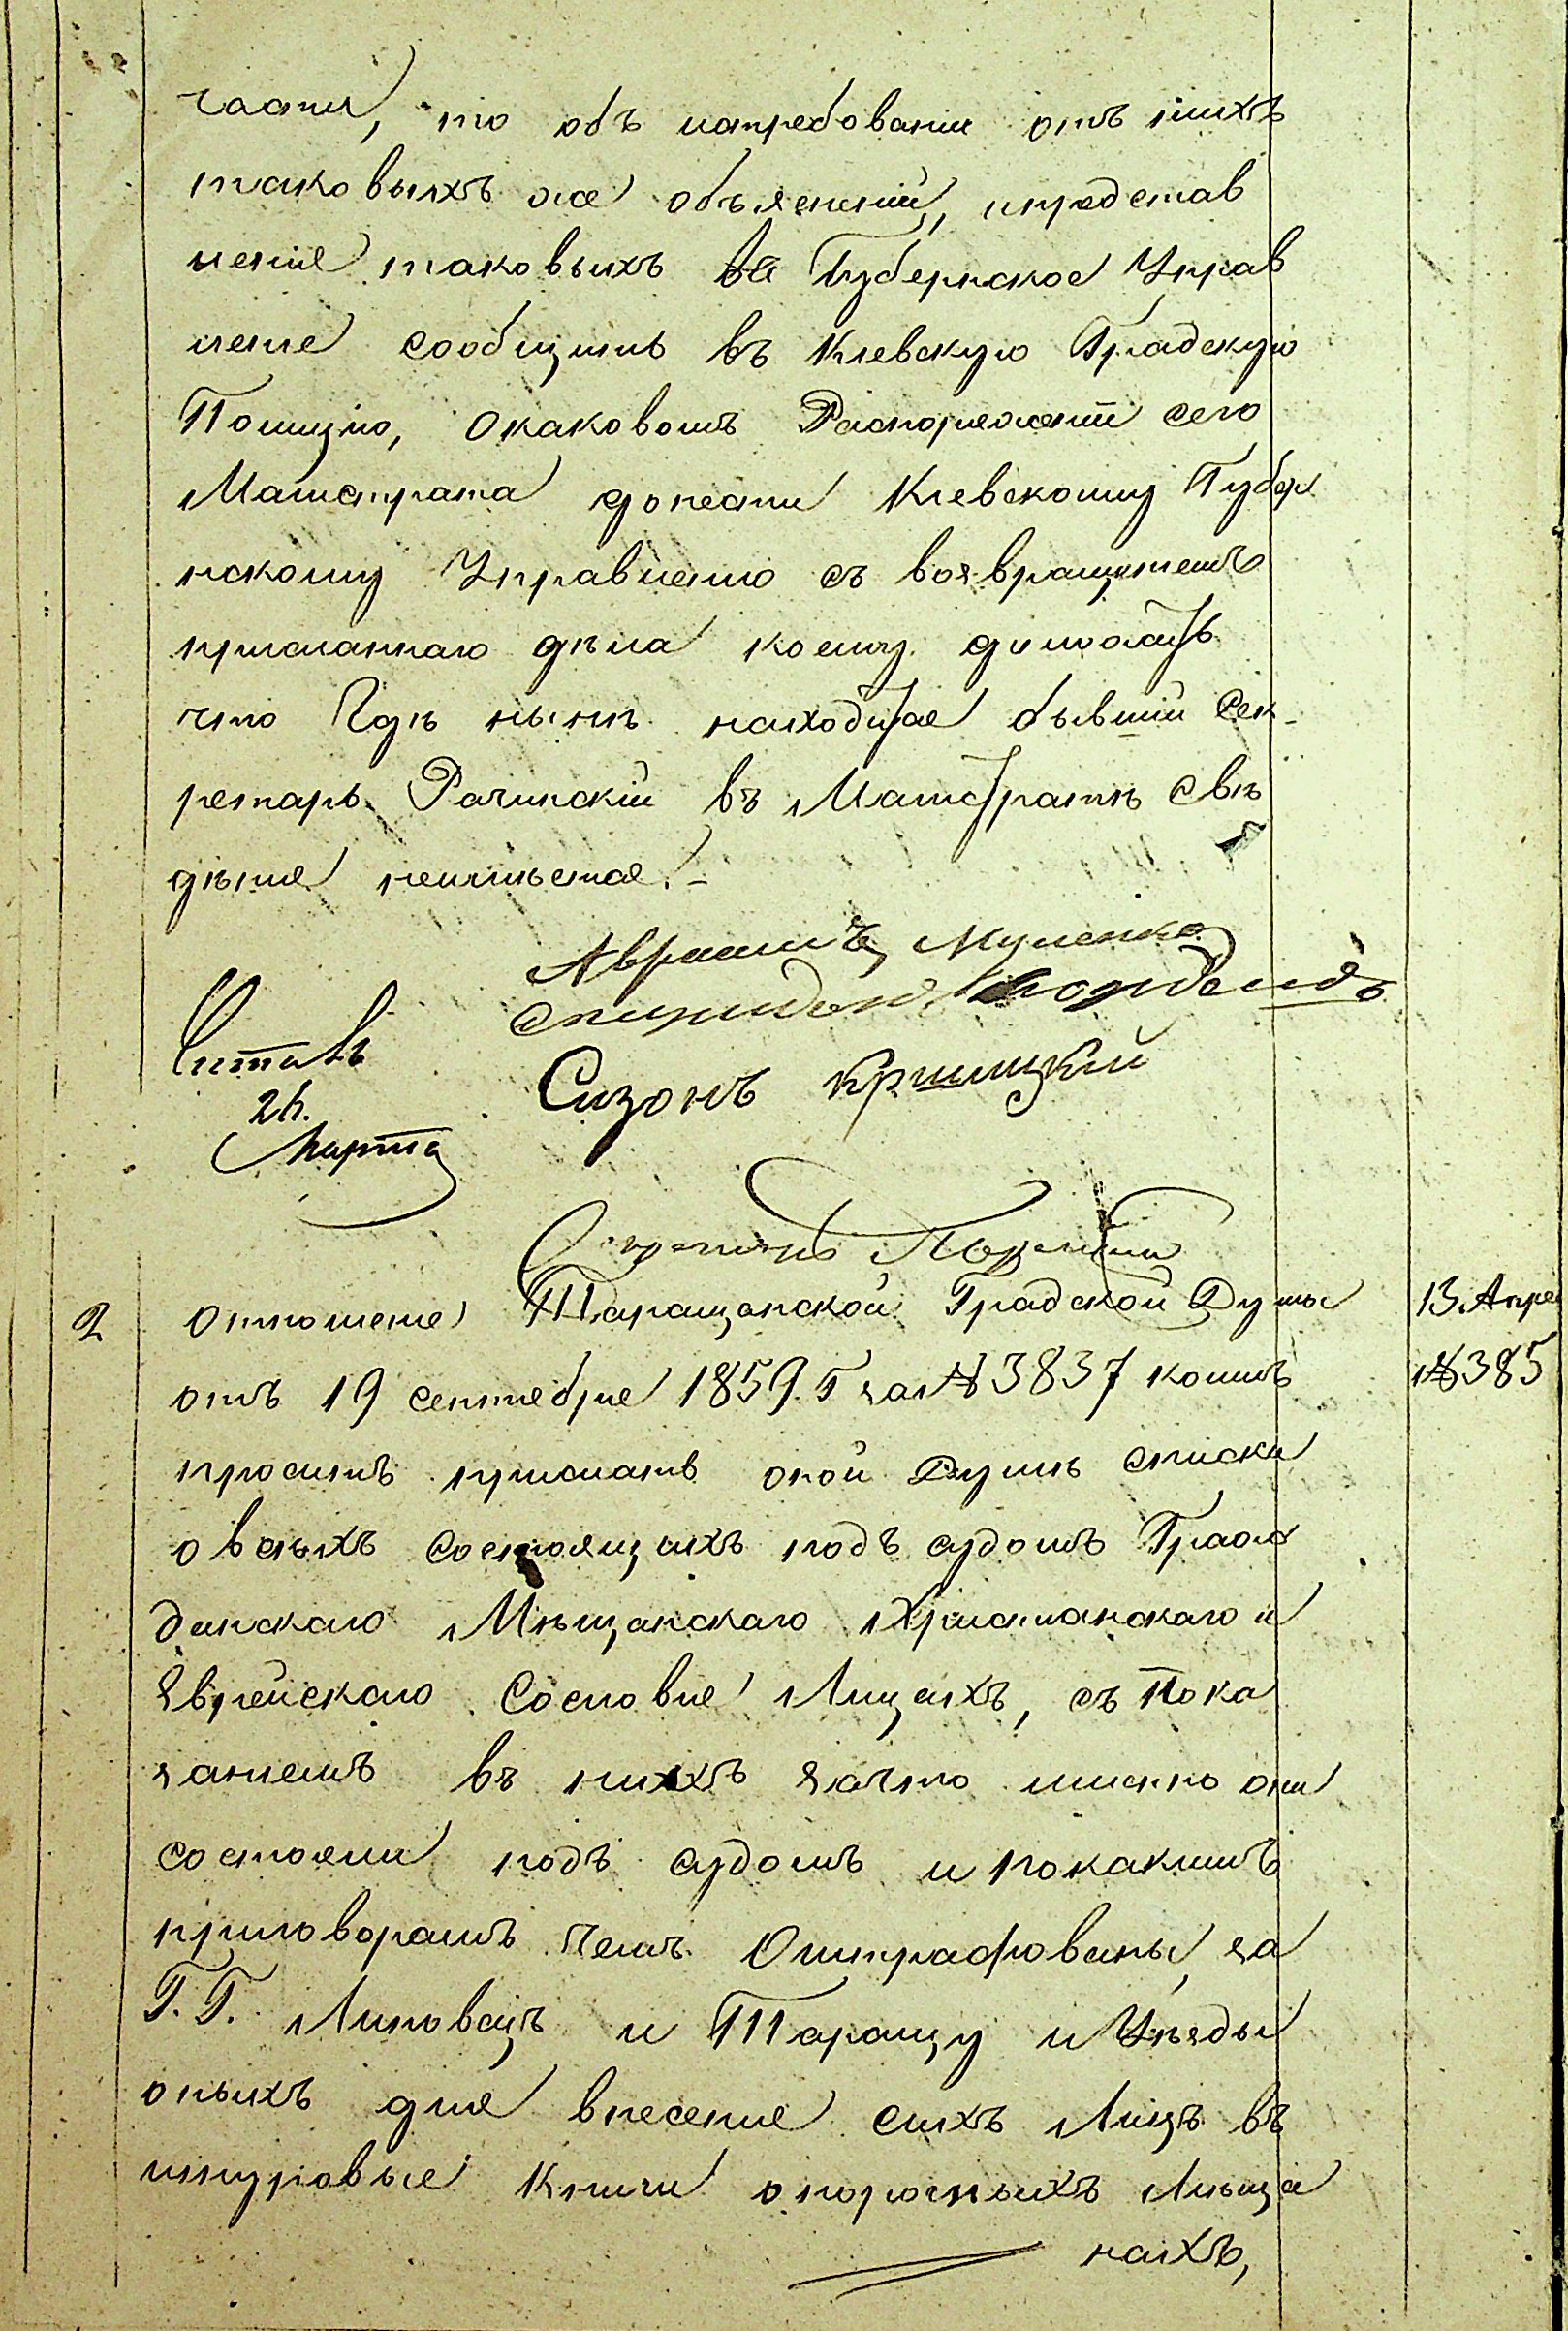 части, то объ истребованіи отъ нихъ
таковыхъ же объясненій, и представ
леніе таковыхъ въ Губернское Управ
леніе сообщить въ Кіевскую Градскую
Полицію, о каковомъ Распоряженіи сего
Магистрата донести Кіевскому Губер
нскому Управленію съ возвращеніемъ
присланнаго дѣла коему дополнить
что Гдѣ нынѣ находится бывшій Сек-
ретарь Рачинскій въ Магистратѣ свѣ
дѣніе неимѣется.-
Авраамъ Муленко
Спиридонъ
Читалъ
24.
Марта
Сизонъ Крилицкій
Секретарь
2 Отношеніе Таращанской Градской Думы 13 Апре
отъ 19 сентября 1859 Г за № 3837 коимъ №385
проситъ прислать оной Думѣ списки
о всѣхъ состоящихъ подъ судомъ Граж
данскаго Мѣщанскаго Христіанскаго и
Еврейскаго Сословія Лицахъ, съ Пока
заніемъ въ нихъ зачто именно они
состояли подъ судомъ и по какимъ
приговорамъ чемъ Оштрафованы, за
Г.Г. Липовецъ и Таращу и Уѣзды
оныхъ для внесенія сихъ Лицъ въ
шнуровые Книги о порочныхъ Мѣща
нахъ,